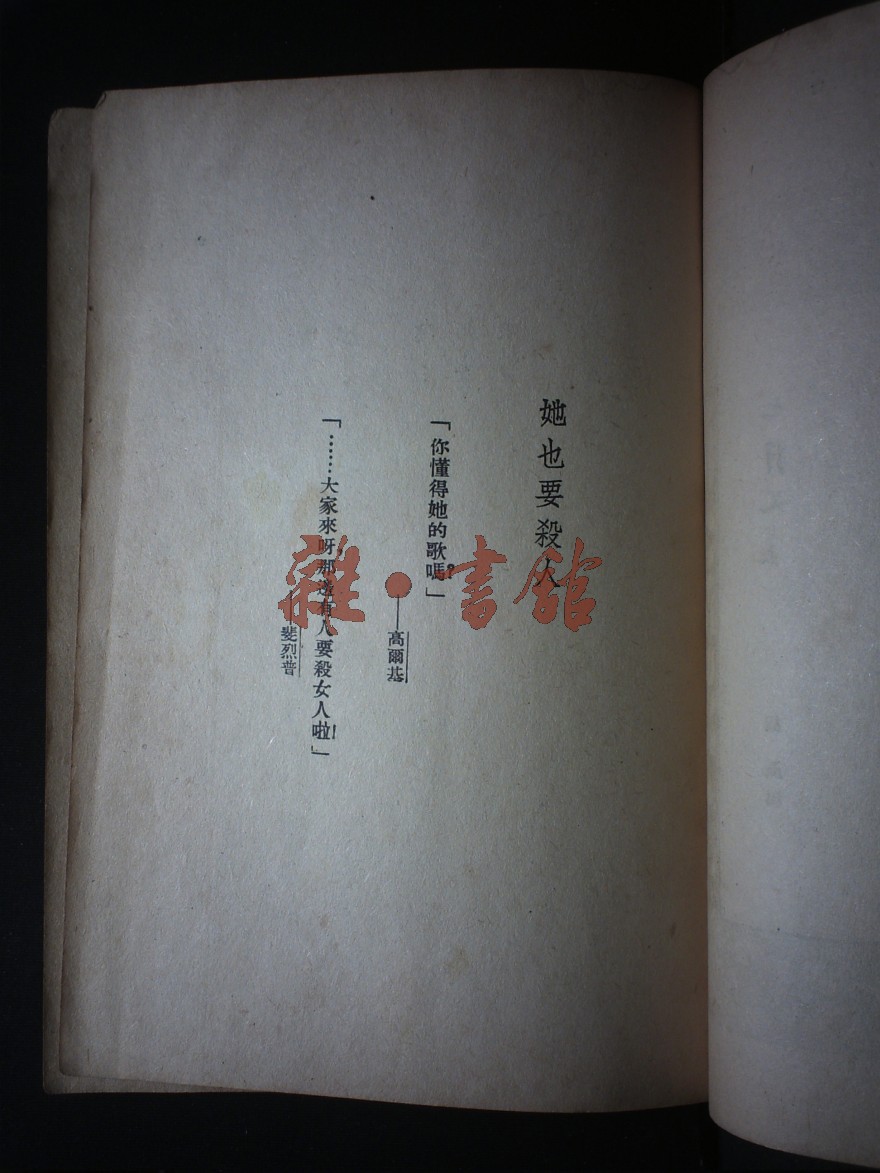 她也要殺人
「你懂得她的歌嗎？」
——高爾基
「……大家來呀，那邊有人要殺女人啦！」
——斐烈普
雜•書館